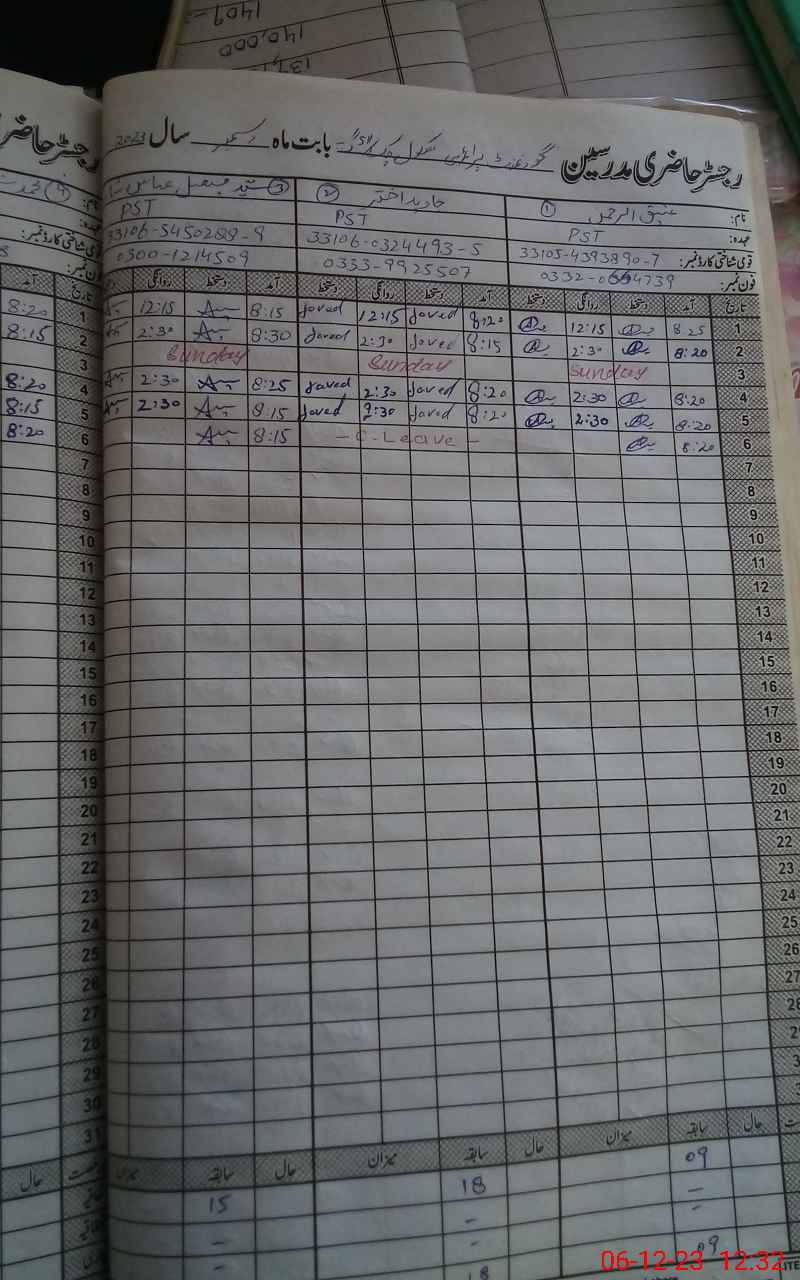 1409
140,000
رجسٹر حاضری مدرسین گورنمنٹ پرائمری سکول بابت ماہ دسمبر سال 2023
نام: ① عتیق الرحمن ② جاوید اختر ③ سید فیصل عباس
عہدہ: PST PST PST
قومی شناختی کارڈ نمبر: 33105-4393890-7 33106-0324493-5 33106-5450289-9
فون نمبر: 0332-0664739 0333-9925507 0300-1214509
تاریخ آمد دستخط روانگی دستخط آمد دستخط روانگی دستخط آمد دستخط روانگی
1 8:25 12:15 8:20 Javed 12:15 Javed 8:15 12:15
2 8:20 2:30 8:15 Javed 2:30 Javed 8:30 2:30
3 Sunday Sunday Sunday
4 8:20 2:30 8:20 Javed 2:30 Javed 8:25 2:30
5 8:20 2:30 8:20 Javed 2:30 Javed 8:15 2:30
6 8:20 - C.Leave - 8:15
7
8
9
10
11
12
13
14
15
16
17
18
19
20
21
22
23
24
25
26
27
28
حال سابقہ میزان حال سابقہ میزان حال سابقہ میزان
09 18 15
- - -
09 18
رجسٹر حاضری
نام:
عہدہ:
قومی شناختی کارڈ نمبر:
فون نمبر:
تاریخ آمد
1 8:20
2 8:15
3
4 8:20
5 8:15
6 8:20
7
8
9
10
11
12
13
14
15
16
17
18
19
20
21
22
23
24
25
26
27
28
29
30
31
حال
06-12-23 12:32